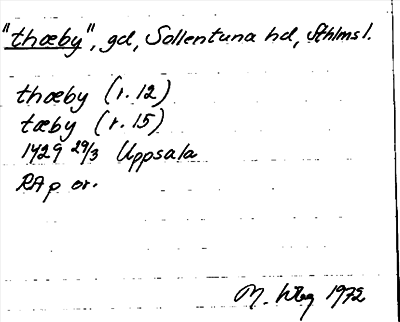 "thæby", gd, Sollentuna hd, Sthlms l.
thæby (r. 12)
tæby (r. 15)
1429 29/3 Uppsala
RA p or.
M. Wbg 1972